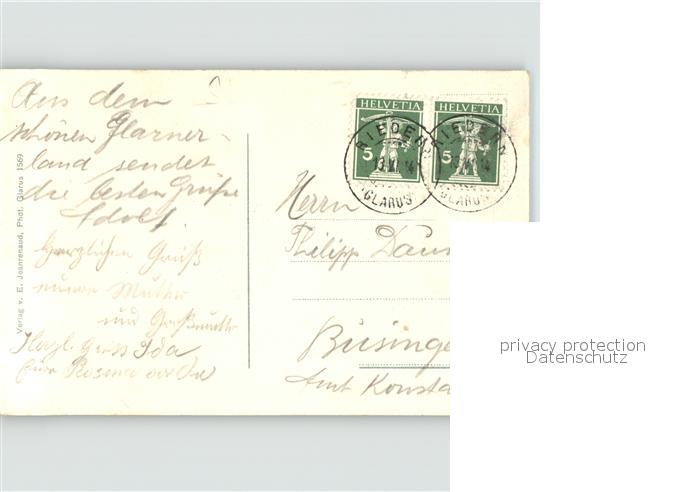 Aus dem
schönen Glarner-
land sendet
die besten Grüße
Adolf.
Herzlichen Gruß
eurer Mutter
und Großmutter
Herzl. Gruss Ida
Verlag v. E. Jeanrenaud, Phot. Glarus 1569
HELVETIA
5
HELVETIA
5
RIEDERN
13. XI. 14
(GLARUS)
RIEDERN
13. XI. 14
(GLARUS)
Herrn
Philipp
Büsinge
Amt Konsta
privacy protection
Datenschutz